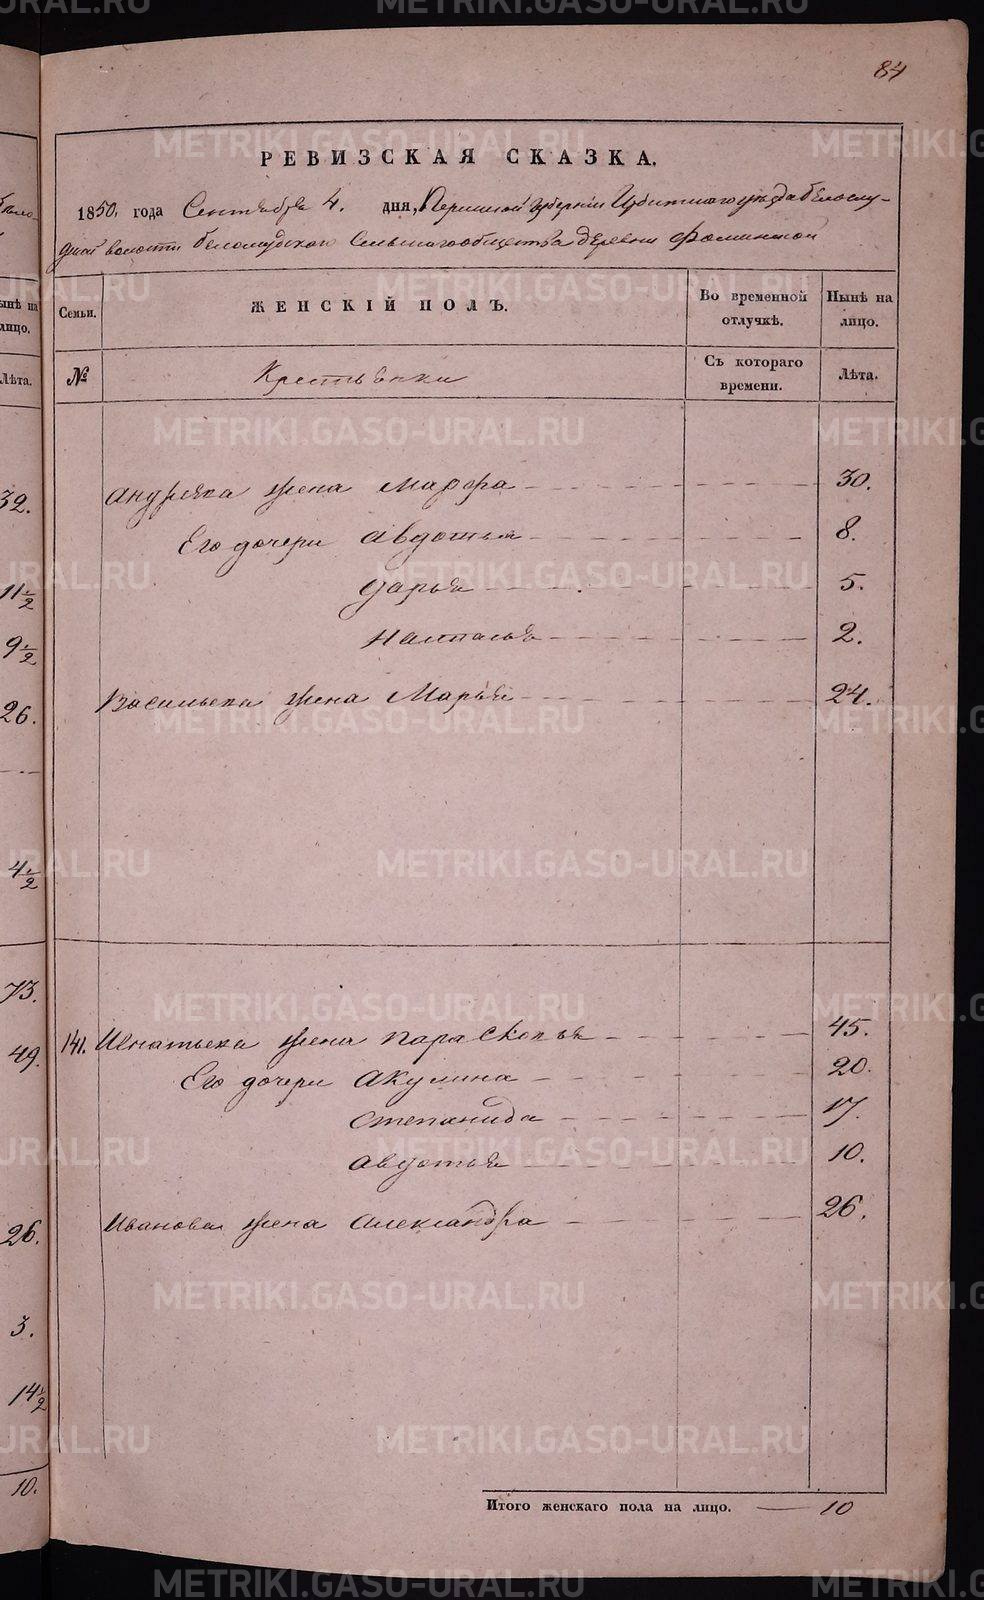 84
РЕВИЗСКАЯ СКАЗКА.
1850 года Сентября 4. дня, Пермской Губернии Ирбитского уѣзда Белослу-
дской волости Белослудского Сельского общества деревни Фоминской
Семьи. ЖЕНСКІЙ ПОЛЪ. Во временной отлучкѣ. Нынѣ на лицо.
№ Крестьянки Съ котораго времени. Лѣта.
Андреяна жена Марфа 30.
Его дочери Авдотья 8.
Дарья 5.
Наталья 2.
Васильева жена Марья 24.
141. Игнатьева жена Парасковья 45.
Его дочери Акулина 20.
Степанида 17.
Авдотья 10.
Иванова жена Александра 26.
Итого женскаго пола на лицо. 10
ынѣ на
лицо.
Лѣта.
32.
11 1/2
9 1/2
26.
4 1/2
73.
49.
26.
3.
14 1/2
10.
METRIKI.GASO-URAL.RU